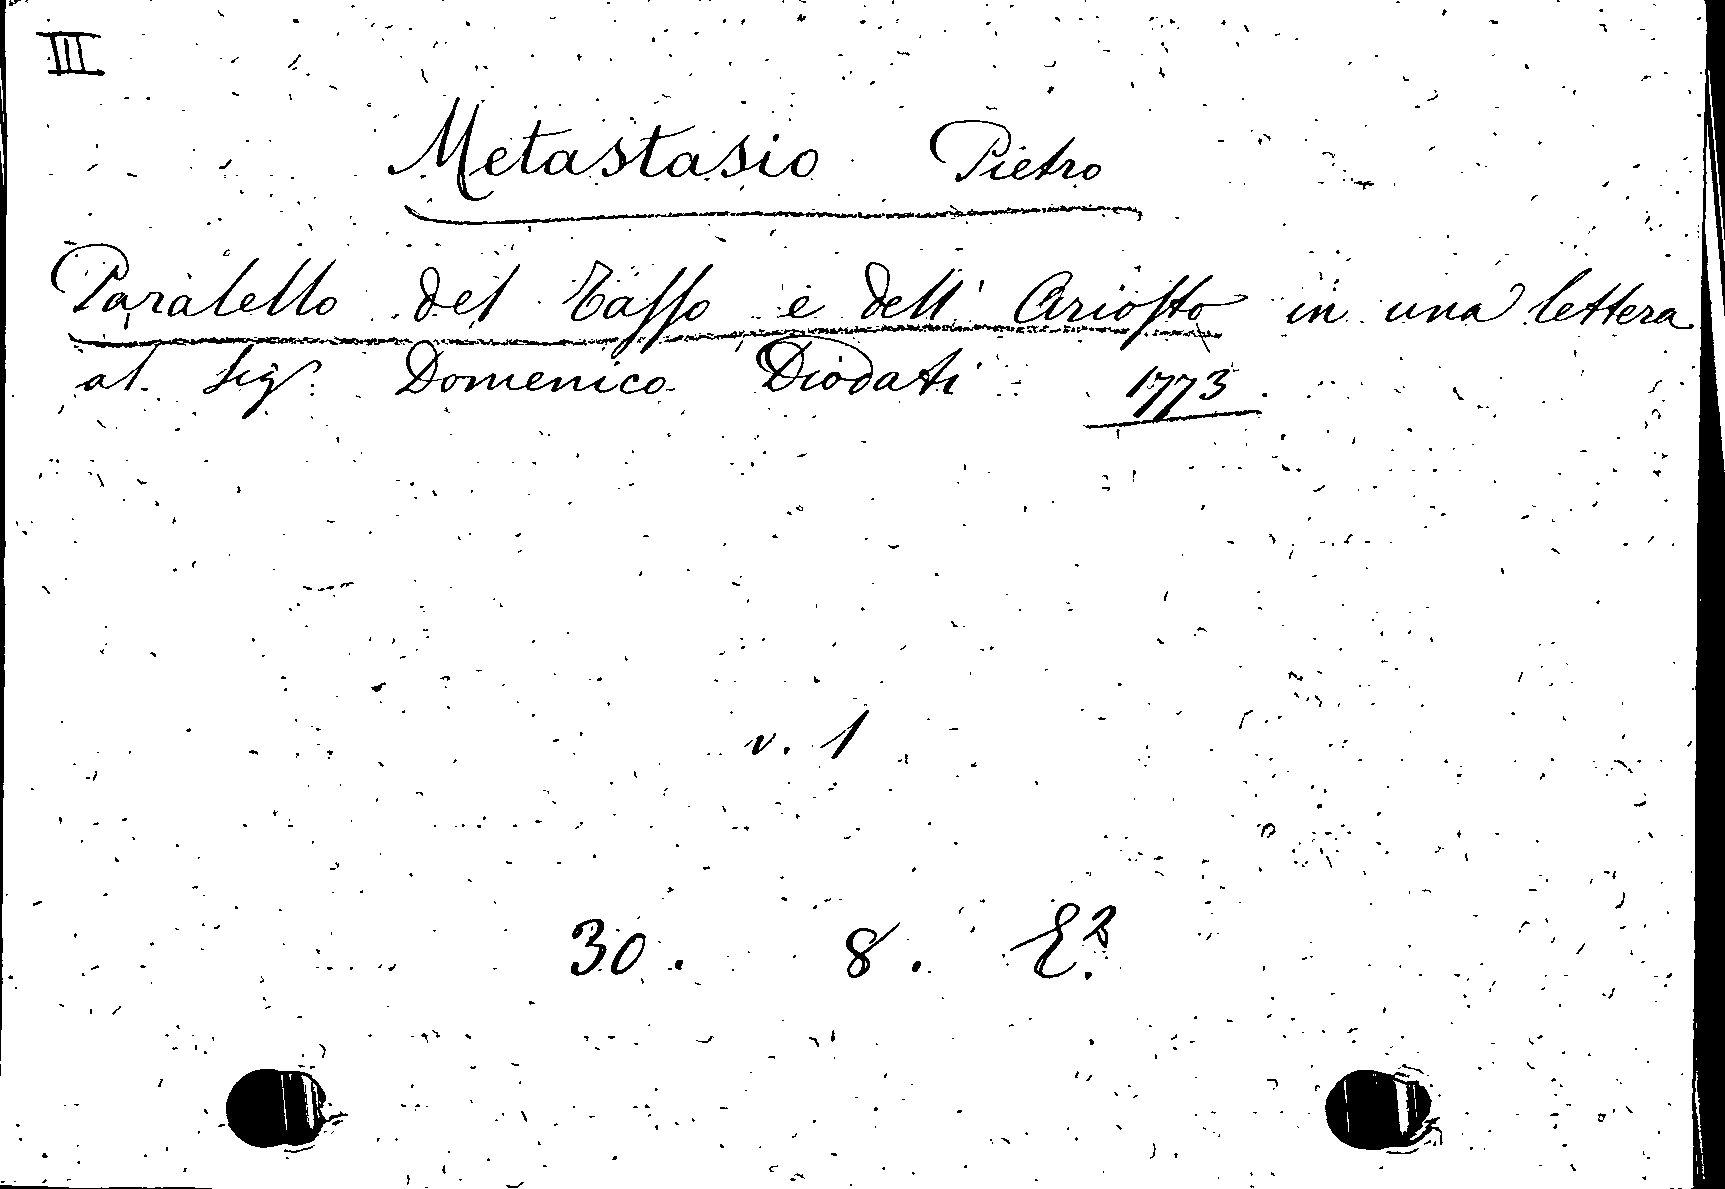 III
Metastasio Pietro
Paralello del Tasso e dell' Ariosto in una lettera
al Sigr. Domenico Diodati 1773.
v. 1
30. 8. E2.